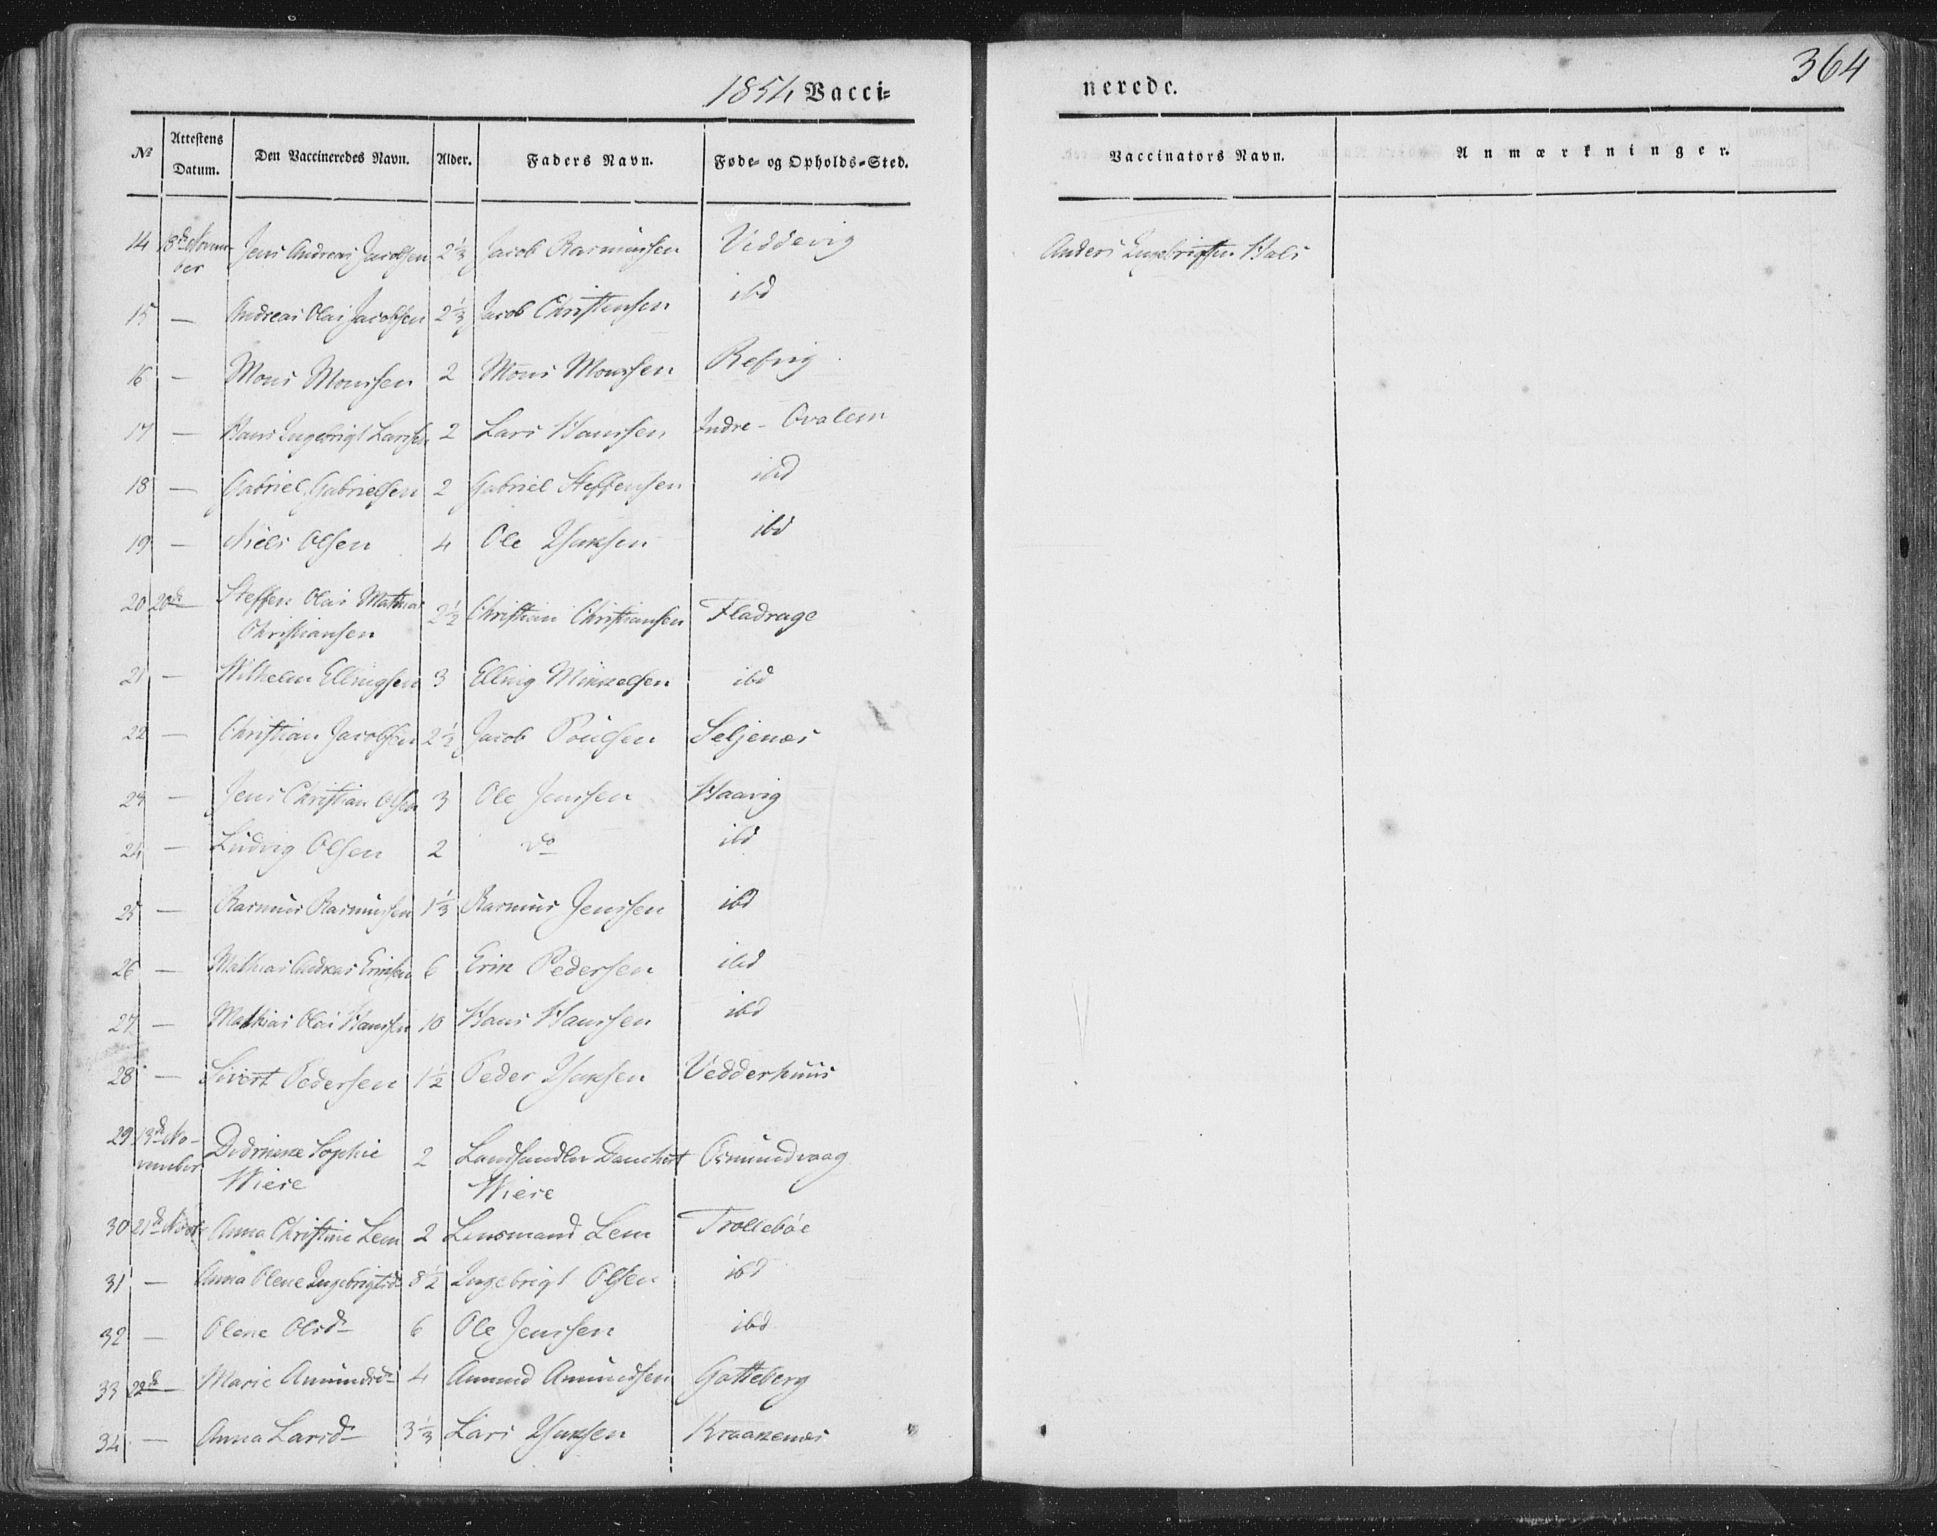 1854 Vacci=
nerede.
364
№ Attestens Datum. Den Vaccineredes Navn. Alder. Faders Navn. Føde= og Opholds=Sted. Vaccinators Navn. Anmærkninger.
14 18de Novem- Jens Andreas Jacobsen 2 1/3 Jacob Rasmussen Viddevig Anders Ingebrigtsen Hals
ber
15 — Andreas Olai Jacobsen 2 1/3 Jacob Christensen ibd
16 — Mons Monssen 2 Mons Monssen Refvig
17 — Hans Ingebrigt Larssen 2 Lars Hanssen Indre- Qvalem
18 — Gabriel Gabrielsen 2 Gabriel Steffensen ibd
19 — Niels Olsen 4 Ole Isaksen ibd
20 20de — Steffen Olai Mathias
Christiansen 2 1/2 Christian Christiansen Fladrage
21 — Wilhelm Ellingsen 3 Elling Mikkelsen ibd
22 — Christian Jacobsen 2 1/2 Jacob Poulsen Seljenæs
23 — Jens Christian Olsen 3 Ole Jenssen Haavig
24 — Ludvig Olsen 2 do ibd
25 — Rasmus Rasmussen 1 1/3 Rasmus Jenssen ibd
26 — Mathias Andreas Eriksen 6 Erik Pedersen ibd
27 — Mathias Olai Hanssen 10 Hans Hanssen ibd
28 — Sivert Pedersen 1 1/2 Peder Isaksen Vedderhuus
29 13de No- Didrikke Sophie 2 Landhandler Danchert Osmundvaag
vember Wiese Wiese
30 21de Novbr Anna Christine Lem 2 Lensmand Lem Trollebøe
31 — Anna Olene Ingebrigtsd 8 1/2 Ingebrigt Olsen ibd
32 — Olene Olsdr 6 Ole Jenssen ibd
33 22de — Marie Amundsdr 4 Amund Amundsen Gotteberg
34 — Anna Larsdr 3 1/3 Lars Isaksen Kraakenæs